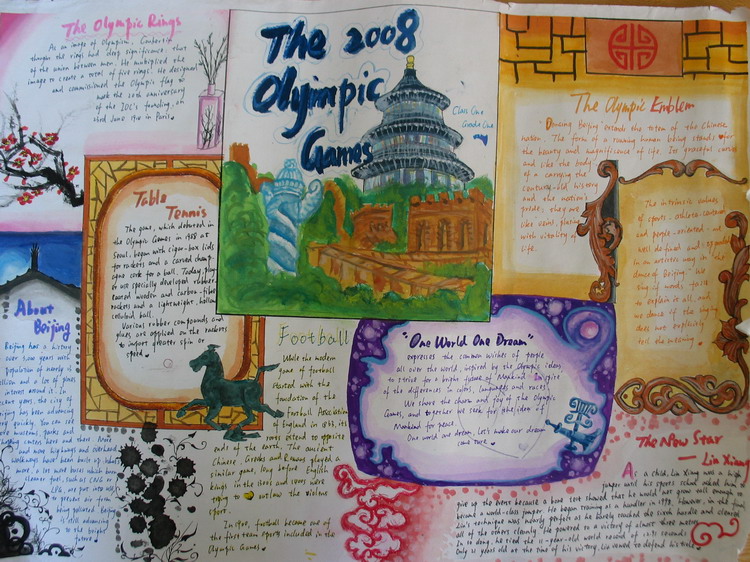 The Olympic Rings
As an image of Olympism, Coubertin
thought the rings had deep significance: that
of the union between men. He multiplied the
image to create a totem of five rings. He designed
and commissioned the Olympic flag to
mark the 20th anniversary
of the IOC's founding
June 1910 in Paris.
The 2008
Olympic
Games
Class One
Grade One
The Olympic Emblem
"Dancing Beijing" extends the totem of the Chinese
nation. The form of a running human being stands for
the beauty and magnificence of life. Its graceful curves
are like the body
of a
carrying the
century-old history
and the nation's
pride; they are
like veins, pulsing
with vitality of
life.
The intrinsic values
of sports
and people-oriented are
well defined and
in an artistic way in "the
dance of Beijing." We
words fail
to explain it all, and
we dance if the singing
does not explicitly
tell the meaning.
Table
Tennis
The game, which debuted in
the Olympic Games in 1988 at
Seoul, began with cigar-box lids
for rackets and a carved champ-
agne cork for a ball. Today, play-
ers use specially developed rubber-
coated wooden and carbon-fiber
rackets and a lightweight, hollow
celluloid ball.
Various rubber compounds and
glues are applied on the rackets
to impart greater spin or
speed.
About
Beijing
Beijing has a history
over 3,000 years with
population of nearly 14
million and a lot of places
of interest around it. In
some years, the city of
Beijing has been advancing
quickly. You can see
museums, parks and
shopping centers here and there. More
and more highways and overhead
walkways have been built up. What's
more, a lot more buses which burn
cleaner fuel, such as CNG or
LPG, are put into use
to prevent air from
being polluted. Beijing
is still advancing
to the bright
future.
Football
While the modern
game of football
started with the
foundation of the
Football Association
of England in 1863, its
roots extend to opposite
ends of the earth. The ancient
Chinese, Greeks and Romans played a
similar game, long before English
kings in the 1300s and 1400s were
trying to outlaw the violent
sport.
In 1900, football became one of
the first team sports included in the
Olympic Games.
"One World One Dream"
expresses the common wishes of people
all over the world, inspired by the Olympic ideas,
to strive for a bright future of Mankind. In spite
of the differences in colors, languages and races,
We share the charm and joy of the Olympic
Games, and together we seek for the idea of
Mankind for peace.
One world one dream, let's make our dream
come true.
The New Star
— Liu Xiang
As a child, Liu Xiang was a high
jumper until his sports school asked him
give up the event because a bone test showed that he would not grow tall enough to
become a world-class jumper. He began training as a hurdler in 1998. However, in the final
Liu's technique was nearly perfect as he barely touched the sixth hurdle and cleared
all of the others cleanly. He powered to a victory of almost three meters.
In so doing, he tied the 11-year-old world record of 12.91 seconds.
Only 21 years old at the time of his victory, Liu vowed to defend his title.